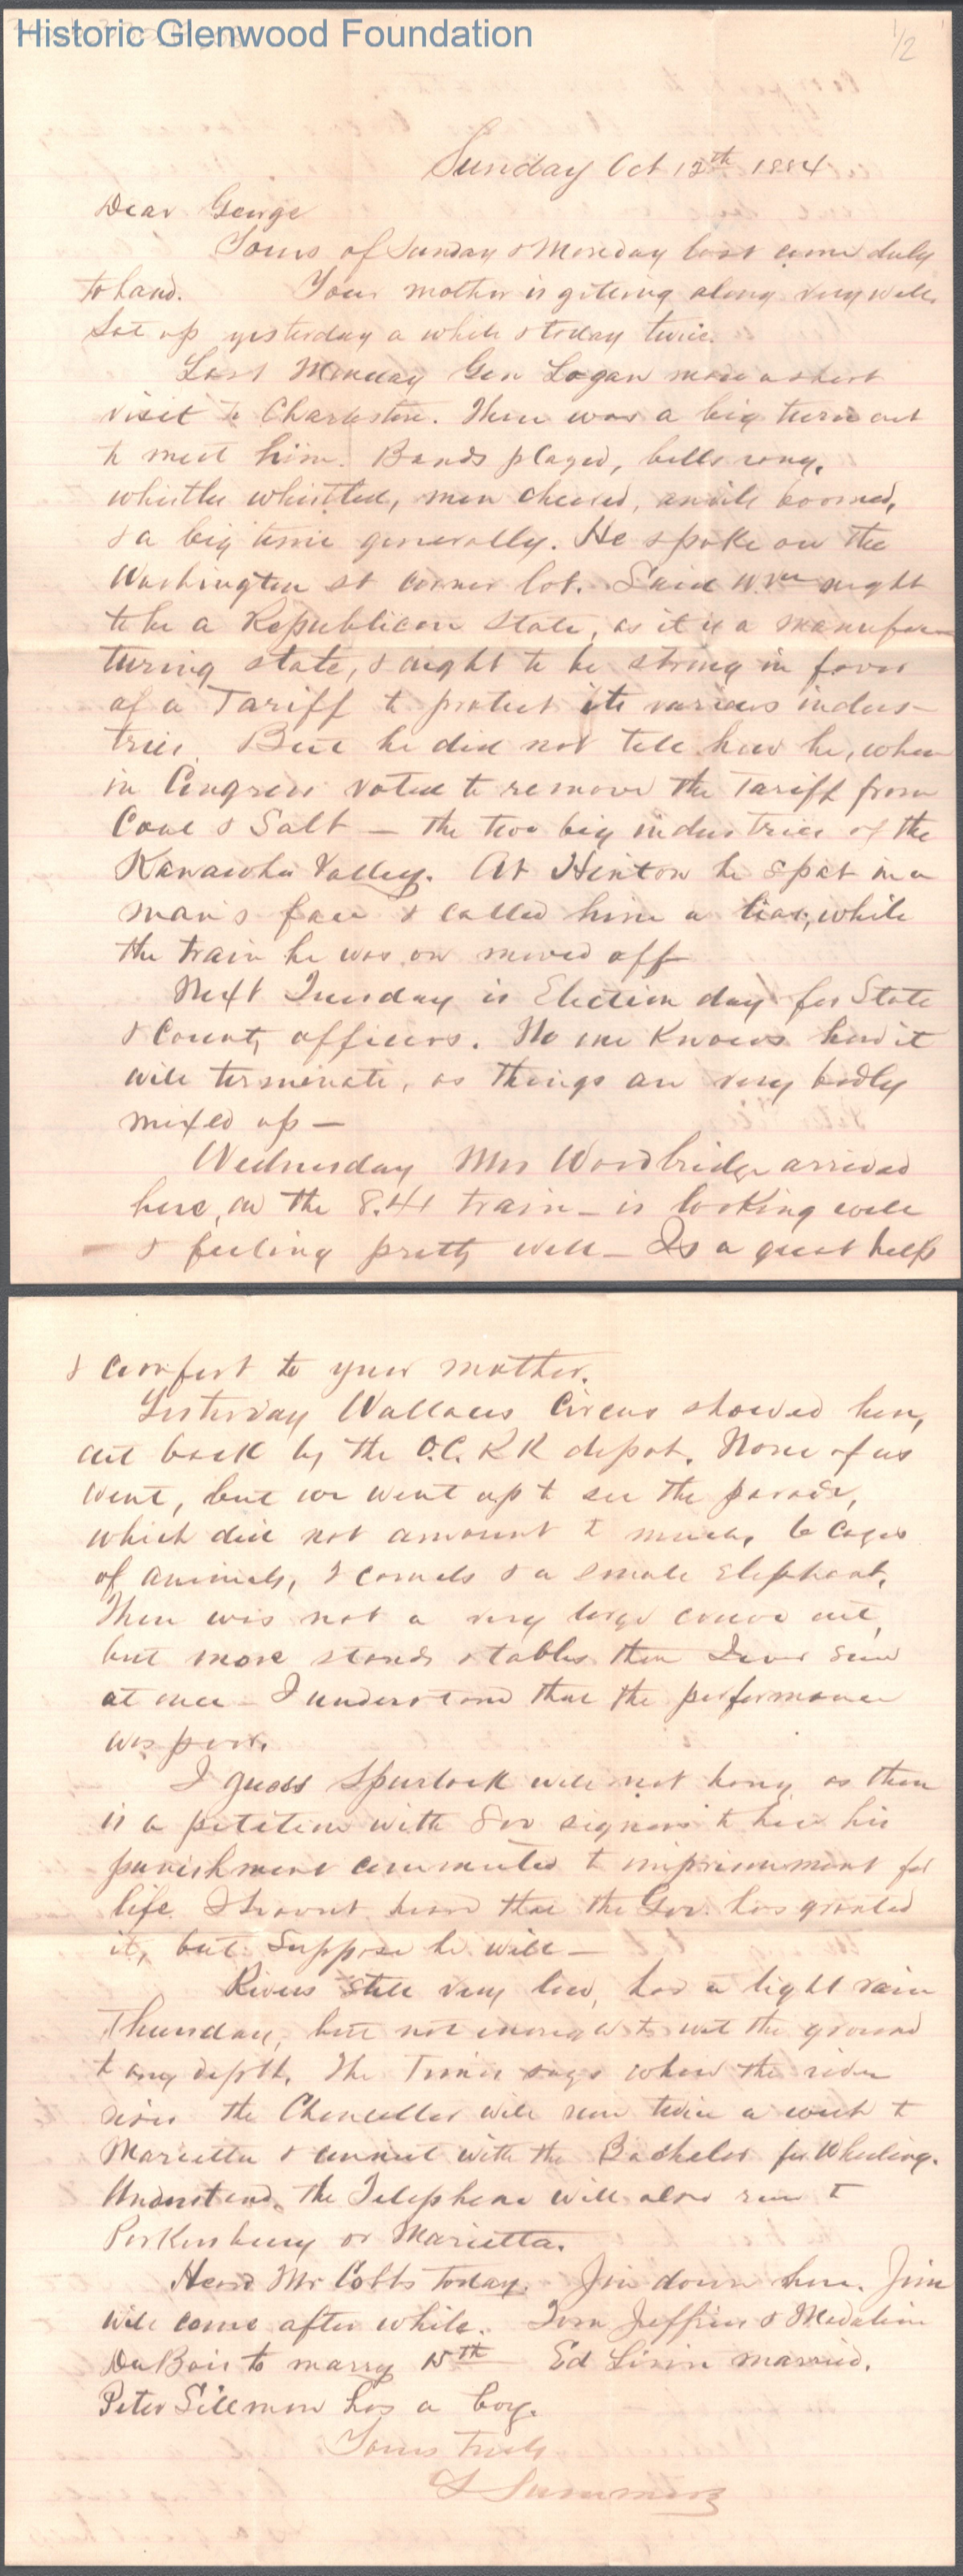 Historic Glenwood Foundation
1/2
Sunday Oct 12th 1884
Dear George
Yours of Sunday & Monday last came duly
to hand. Your mother is getting along very well.
Sat up yesterday a while & today twice.
Last Monday Gen Logan made a short
visit to Charleston. There was a big turn out
to meet him. Bands played, bells rang,
whistles whistled, men cheered, anvils boomed,
& a big time generally. He spoke on the
Washington st corner lot. Said W. Va ought
to be a Republican State, as it is a manufac
turing state, & ought to be strong in favor
of a Tariff to protect its various indus–
tries. But he did not tell how he, when
in Congress voted to remove the Tariff from
Coal & Salt – the two big industries of the
Kanawha Valley. At Hinton he spat in a
man's face & called him a liar, while
the train he was on moved off
Next Tuesday is Election day for State
& County officers. No one Knows how it
will terminate, as things are very badly
mixed up –
Wednesday Mrs Woodbridge arrived
here, on the 8.41 train – is looking well
& feeling pretty well – Is a great help
& comfort to your mother.
Yesterday Wallaces Circus showed here,
out back by the O.C. RR depot. None of us
went, but we went up to see the parade,
which did not amount to much, 6 cages
of animals, 2 camels & a small Elephant.
There was not a very large crowd out,
but more stands & tables than I ever saw
at once – I understand that the performance
was poor.
I guess Spurlock will not hang, as there
is a petition with 800 signers to have his
punishment commuted to imprisonment for
life. I havent heard that the Gov. has granted
it, but suppose he will –
Rivers still very low, had a light rain
Thursday, but not enough to wet the ground
to any depth. The Times says when the river
rises the Chancellor will run twice a week to
Marietta & connect with the Batchelor for Wheeling.
Understand the Telephone will also run to
Parkersburg or Marietta.
Heard Mr Cobbs today. Jim down here. Jim
will come after while. Tom Jeffries & Madaline
DuBois to marry 15th Ed Sirin married.
Peter Sillman has a boy.
Yours Truly
L Summers